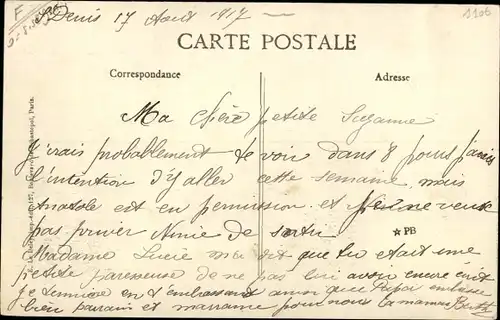 St Denis 17 Aout 1917
1106
CARTE POSTALE
Correspondance
Adresse
Ma chère petite Suzanne
J'irais probablement te voir dans 8 jours j'avais
l'intention d'y aller cette semaine, mais
Anatole est en permission et je ne veux
pas priver Ninie de sortir
★PB
Madame Lucie m'a dit que tu etait une
petite paresseuse de ne pas lui avoir encore écrit
je termine en t'embrassant ainsi que Papa embrasse
bien parrain et marraine pour nous ta maman Berthe